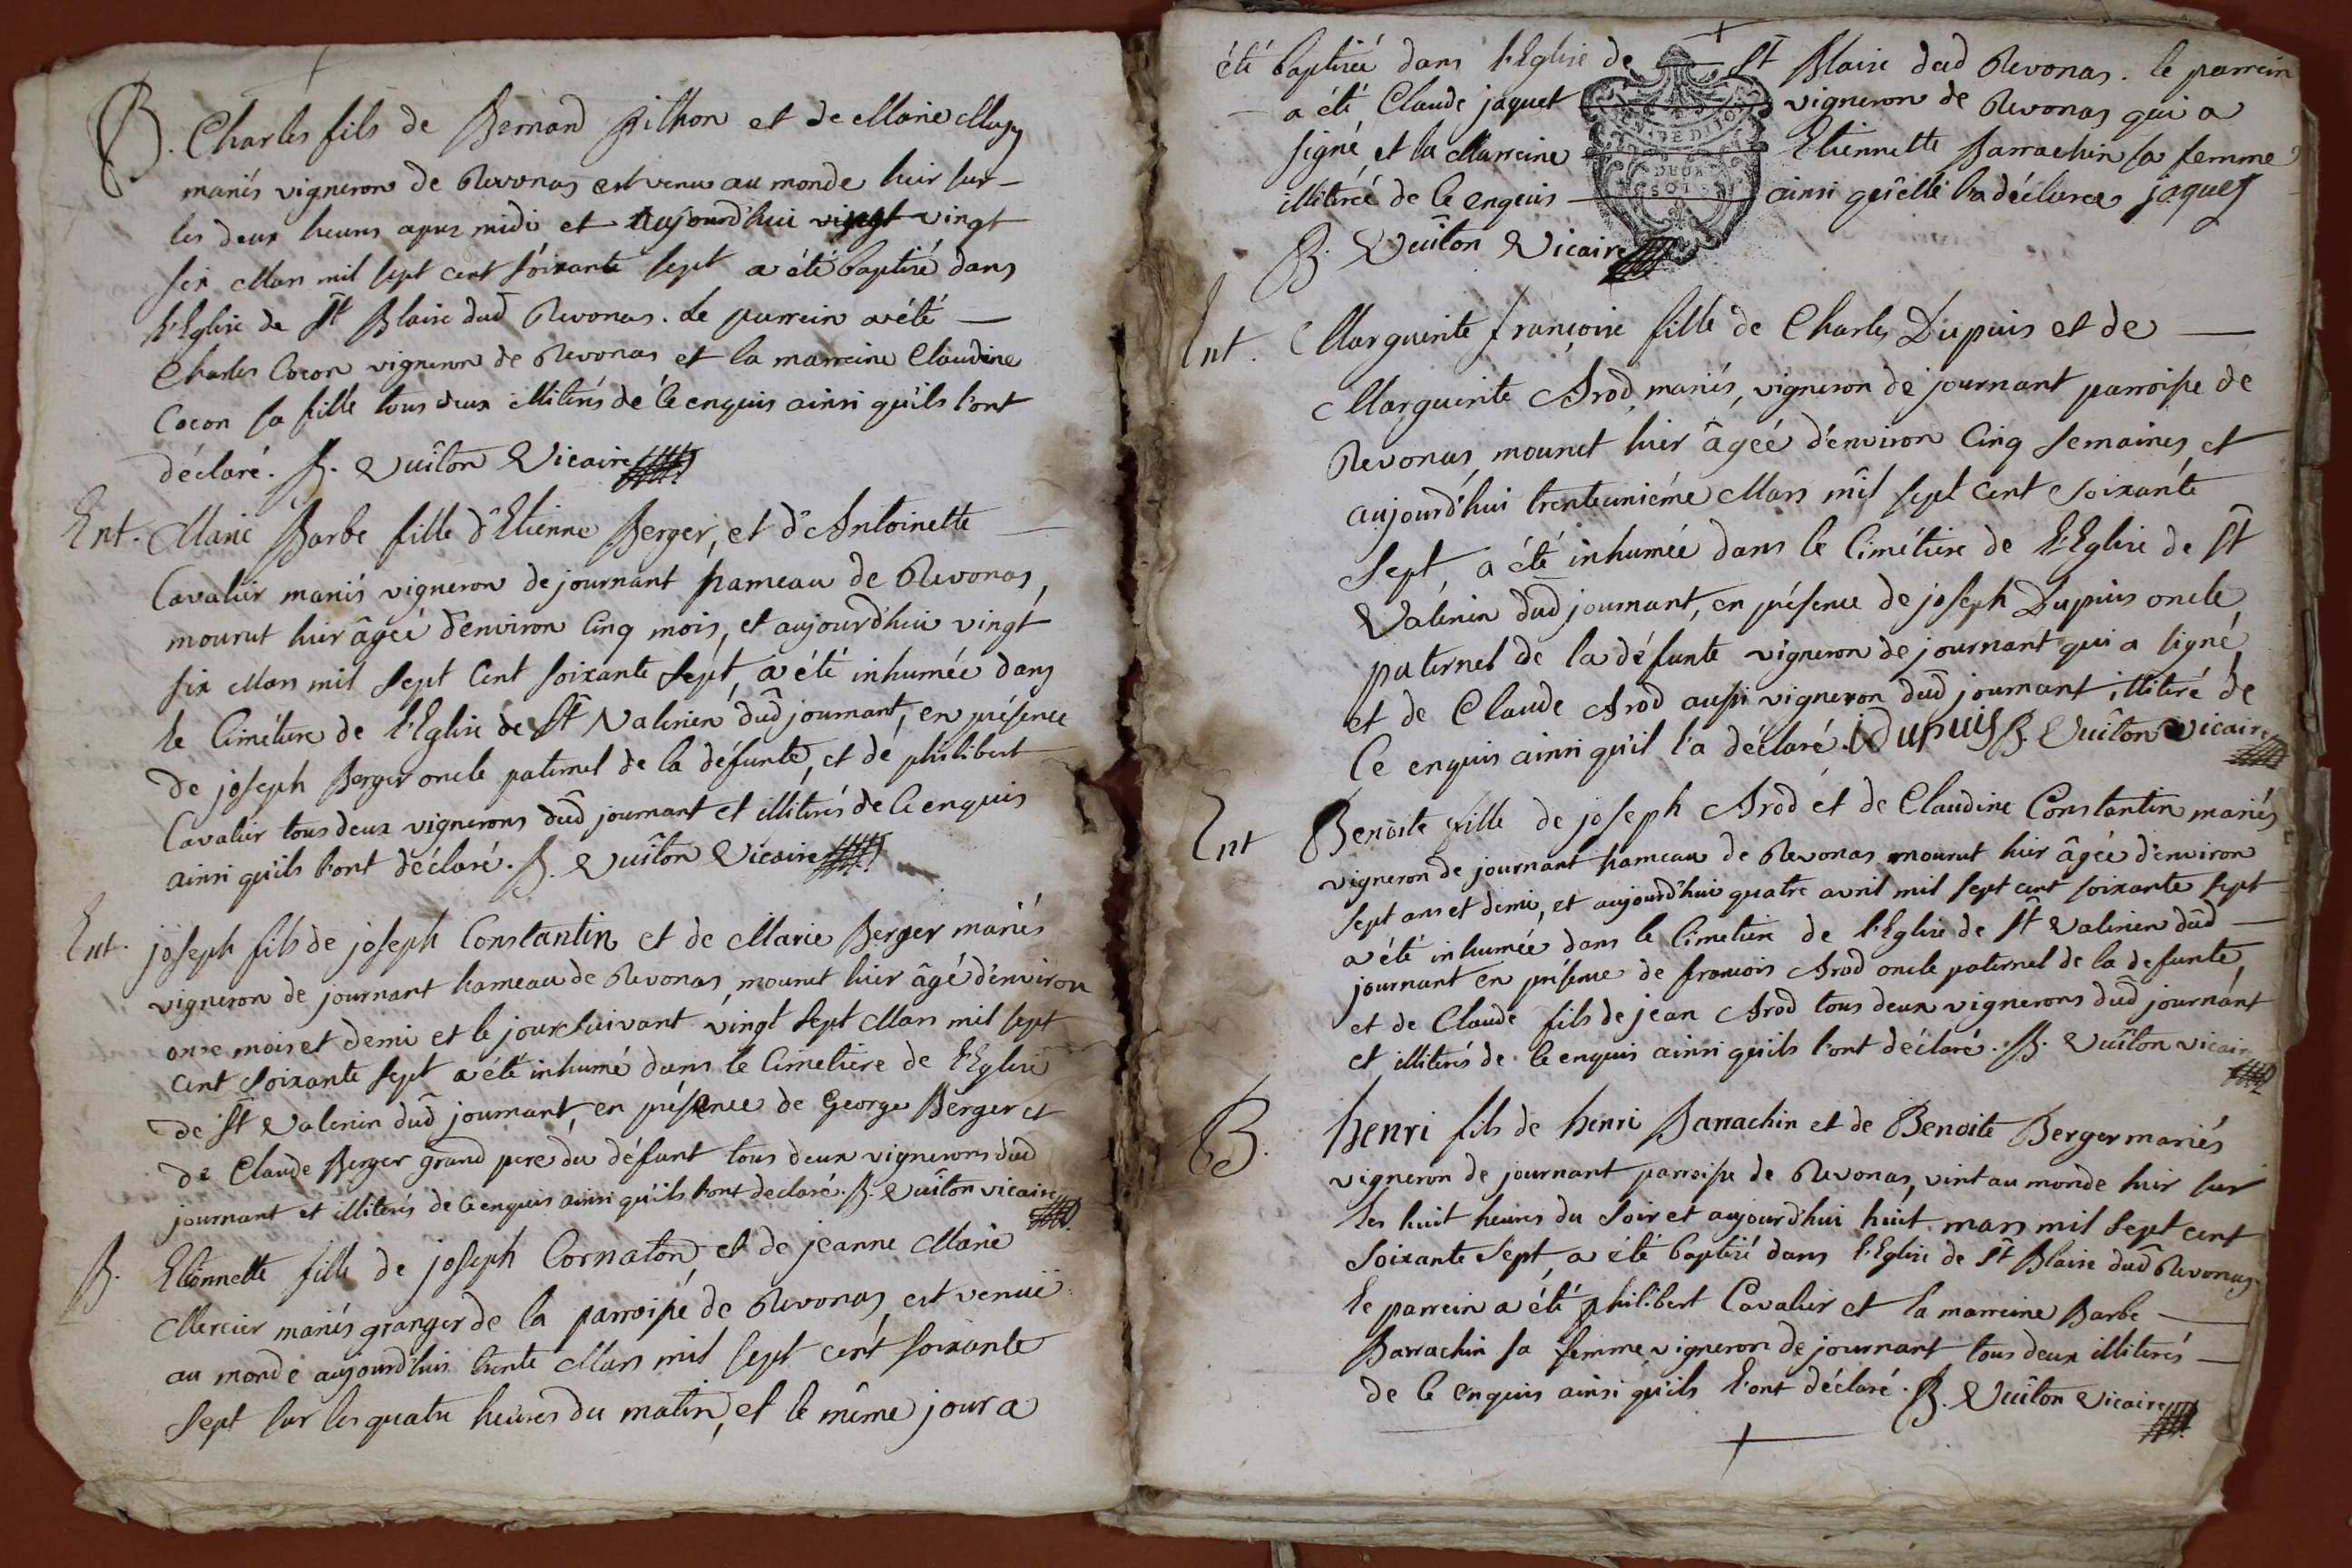 B. Charles fils de Bernard Pithon et de Marie Mugy
mariés vigneron de Revonas est venu au monde hier sur
les deux heures aprez midi et aujourd'hui vingt vingt
six Mars mil sept cent soixante sept a été baptisé dans
l'Eglise de St Blaise dud Revonas. le parrein a été
Charles Cocon vigneron de Revonas et la marreine Claudine
Cocon sa fille tous deux illiterés de ce enquis ainsi qu'ils l'ont
déclaré. B. Vuiton Vicaire
Ent. Marie Barbe fille d'Etienne Berger, et d'Antoinette
Cavalier mariés vigneron de journant hameau de Revonas,
mourut hier âgée d'environ cinq mois, et aujourd'hui vingt
six Mars mil sept cent soixante sept, a été inhumée dans
le Cimétiere de l'Eglise de St Valerien dud journant, en présence
de joseph Berger oncle paternel de la défunte, et de philibert
Cavalier tous deux vignerons dud journant et illiterés de ce enquis
ainsi qu'ils l'ont déclaré. B. Vuiton Vicaire
Ent. joseph fils de joseph Constantin et de Marie Berger mariés
vigneron de journant hameau de Revonas, mourut hier âgé d'environ
onze mois et demi et le jour suivant vingt sept Mars mil sept
cent soixante sept a été inhumé dans le Cimetiere de l'Eglise
de St Valerien dud journant, en présence de George Berger et
de Claude Berger grand pere du défunt tous deux vignerons dud
journant et illiterés de ce enquis ainsi qu'ils l'ont declaré. B. Vuiton vicaire
B. Etiennette fille de joseph Cornaton, et de jeanne Marie
Mercier mariés granger de la parroisse de Revonas, est venuë
au monde aujourd'hui trente Mars mil sept cent soixante
sept sur les quatre heures du matin, et le même jour a
été baptisée dans l'Eglise de St Blaise dud Revonas. le parrein
a été, Claude jaquet vigneron de Revonas qui a
signé, et la Marreine Etiennette Barrachin sa femme
illiterée de ce enquis ainsi qu'elle l'a déclaré jaquet
B. Vuiton Vicaire
DEUX
SOLS
Ent. Marguerite françoise fille de Charles Dupuis et de
Marguerite Arod, mariés, vigneron de journant parroisse de
Revonas, mourut hier âgée d'environ cinq semaines, et
aujourd'hui trenteuniéme Mars mil sept cent soixante
sept, a été inhumée dans le Cimétiere de l'Eglise de St
Valerien dud journant, en présence de joseph Dupuis oncle
paternel de la défunte vigneron de journant qui a signé
et de Claude Arod aussi vigneron dud journant illiteré de
Ce enquis ainsi qu'il l'a déclaré. i Dupuis B. Vuiton vicaire
Ent Benoite fille de joseph Arod et de Claudine Constantin mariés
vigneron de journant hameau de Revonas mourut hier âgée d'environ
sept ans et demi, et aujourd'hui quatre avril mil sept cent soixante sept
a été inhumée dans le Cimetiere de l'Eglise de St Valerien dud
journant en présence de francois Arod oncle paternel de la defunte,
et de Claude fils de jean Arod tous deux vignerons dud journant
et illiterés de ce enquis ainsi qu'ils l'ont déclaré. B. Vuiton vicaire
B. henri fils de henri Barrachin et de Benoite Berger mariés
vigneron de journant parroisse de Revonas, vint au monde hier sur
les huit heures du soir et aujourd'hui huit mars mil sept cent
soixante sept, a été baptisé dans l'Eglise de St Blaise dud Revonas
le parrein a été philibert Cavalier et la marreine Barbe
Barrachin sa femme vigneron de journant tous deux illiterés
de ce enquis ainsi qu'ils l'ont déclaré. B. Vuiton Vicaire